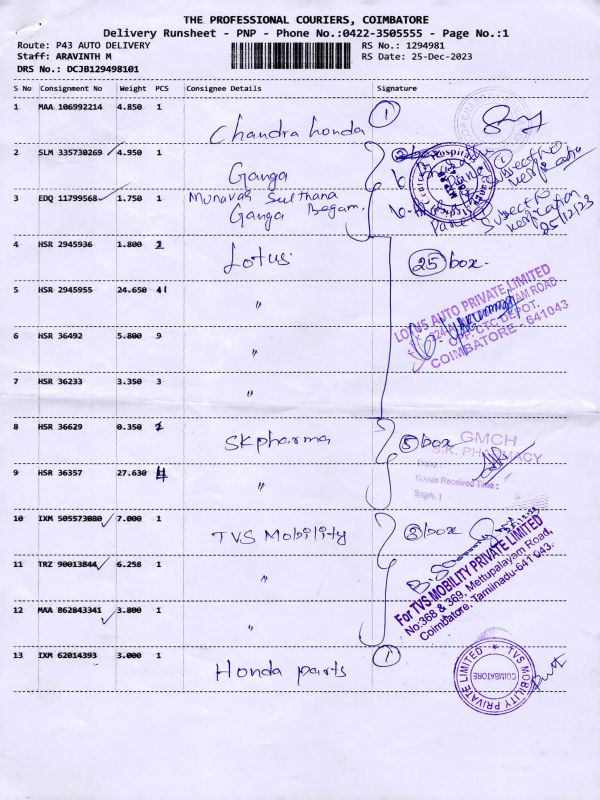 THE PROFESSIONAL COURIERS, COIMBATORE
Delivery Runsheet - PNP - Phone No.:0422-3505555 - Page No.:1
Route: P43 AUTO DELIVERY
RS No.: 1294981
Staff: ARAVINTH M
RS Date: 25-Dec-2023
DRS No.: DCJB129498101
S No Consignment No Weight PCS Consignee Details Signature
1 MAA 106992214 4.850 1 Chandra honda 1
2 SLM 335730269 4.950 1 Ganga
3 EDQ 11799568 1.750 1 Munavar Sulthana
Ganga Begam.
Subject to
verification
25/12/23
4 HSR 2945936 1.800 Lotus 25 box.
5 HSR 2945955 24.650 41 "
LOTUS AUTO PRIVATE LIMITED
OPP CTC DEPOT.
COIMBATORE - 641043
6 HSR 36492 5.800 9 "
7 HSR 36233 3.350 3 "
8 HSR 36629 0.350 SK pharma 5 box
GMCH
S.K. PHARMACY
Date :
Goods Received Time :
Sign. :
9 HSR 36357 27.630 4 "
10 IXM 505573080 7.000 1 TVS Mobility 3 box
11 TRZ 90013844 6.258 1 "
For TVS MOBILITY PRIVATE LIMITED
No.368 & 369, Mettupalayam Road,
Coimbatore, Tamilnadu-641 043.
12 MAA 862843341 3.800 1 "
13 IXM 62014393 3.000 1 Honda parts 1
TVS MOBILITY PRIVATE LIMITED
COIMBATORE